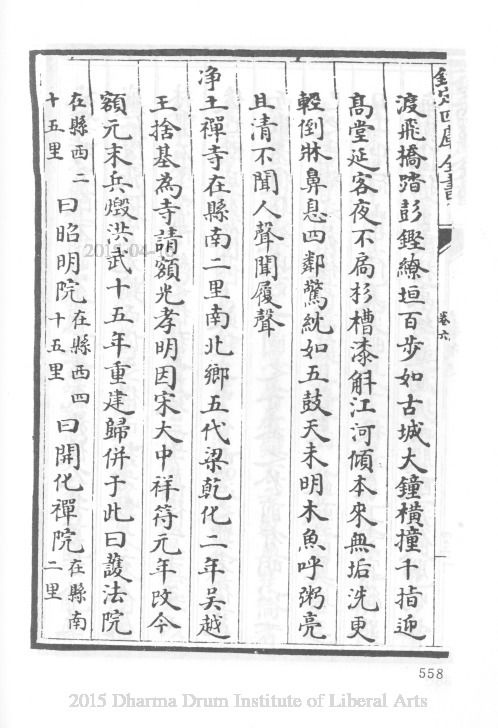 欽定四庫全書
卷六
渡飛橋踏彭鏗繚垣百步如古城大鐘橫撞千指迎
高堂延客夜不扃杉槽漆斛江河傾本來無垢洗更
輕倒牀鼻息四鄰驚紞如五鼓天未明木魚呼粥亮
且清不聞人聲聞履聲
净土禪寺在縣南二里南北鄉五代梁乾化二年吳越
王捨基為寺請額光孝明因宋大中祥符元年改今
額元末兵燬洪武十五年重建歸併于此曰護法院
在縣西二十五里曰昭明院在縣西四十五里曰開化禪院在縣南二里
558
2015 Dharma Drum Institute of Liberal Arts